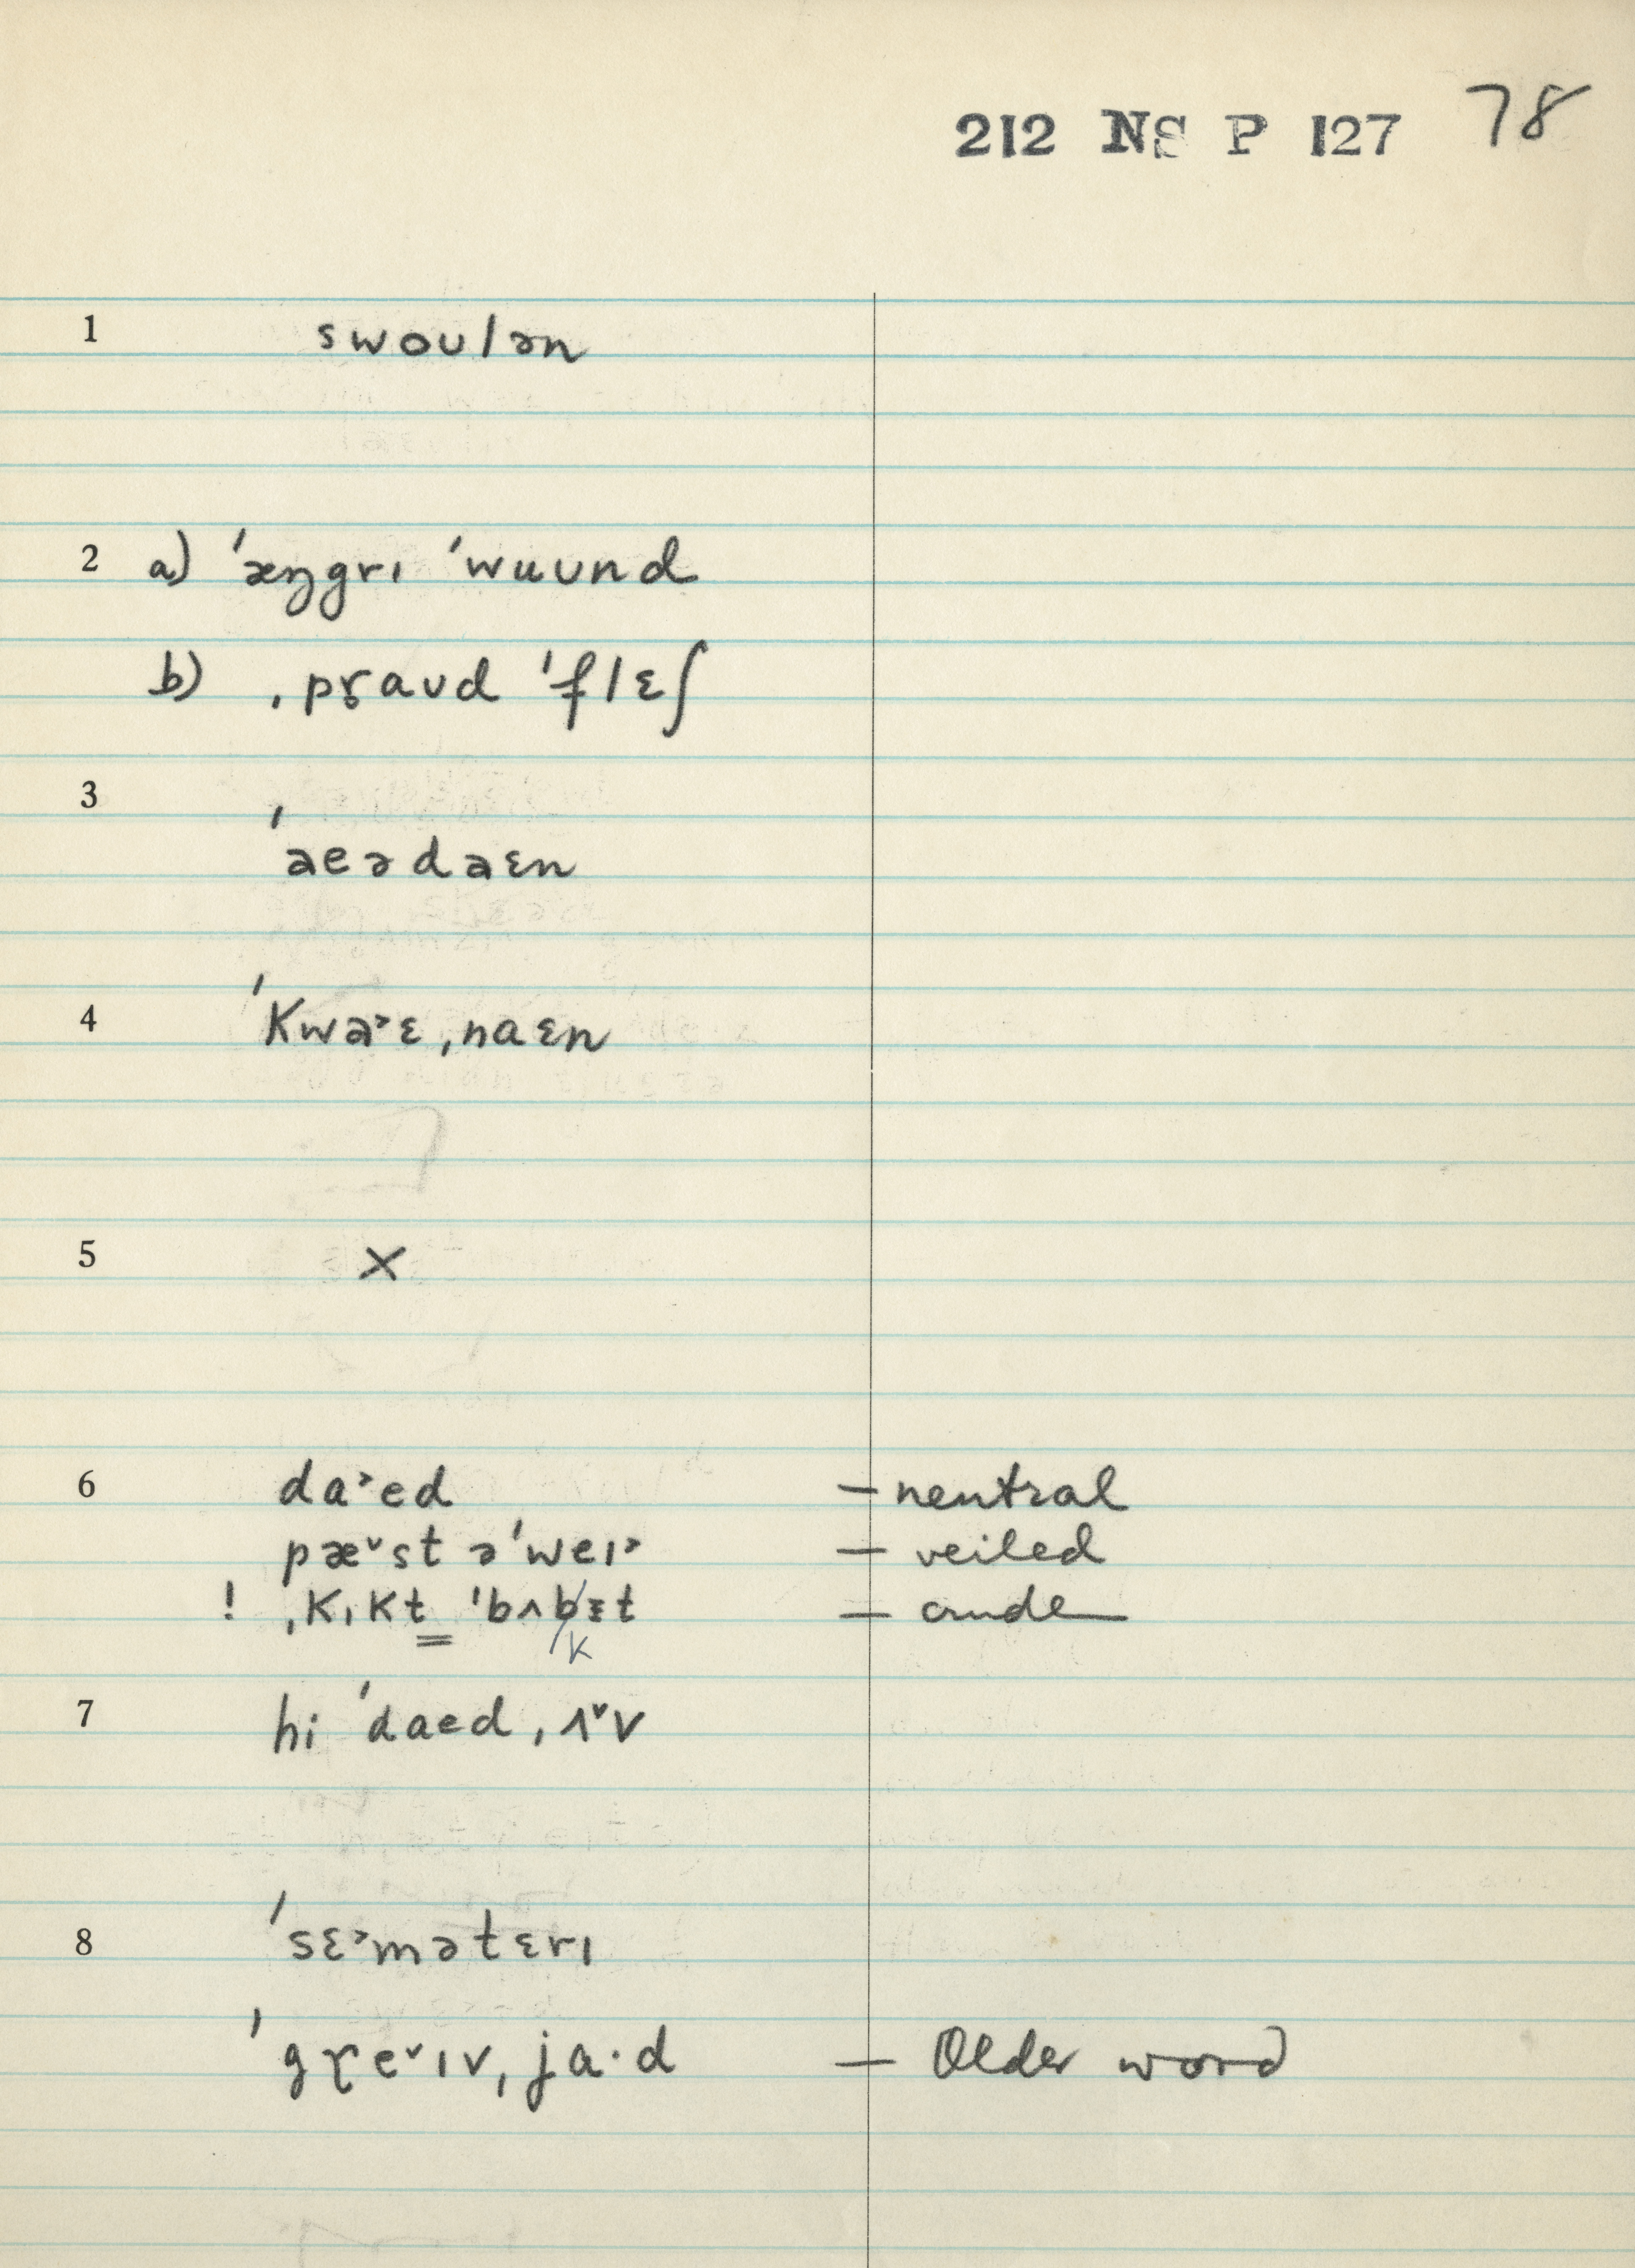 212 NS P 127 78
1 swoʊlən
2 a) ˈæŋgrɪ ˈwuʊnd
b) ˌpɽaʊd ˈflɛʃ
3 ˈaeədaɛn
4 ˈKwa˃ɛˌnaɛn
5 ×
6 da˃ed — neutral
pæ˅st əˈweɪ˃ — veiled
! ˌKɪKt ˈbʌKɪt — crude
7 hi ˈdaedˌʌ˅v
8 ˈsɛ˃mətɛrɪ
ˈgɽe˅ɪvˌja·d — Older word